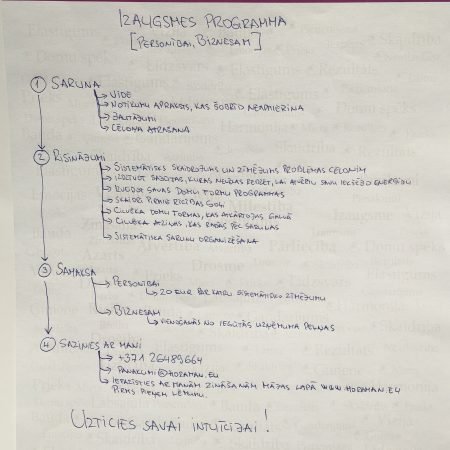 IZAUGSMES PROGRAMMA
[PERSONĪBAI, BIZNESAM]
1 SARUNA
VIDE
NOTIKUMU APRAKSTS, KAS ŠOBRĪD NEAPMIERINA
JAUTĀJUMI
CĒLOŅA ATRAŠANA
2 RISINĀJUMI
SISTEMĀTISKS SKAIDROJUMS UN ZĪMĒJUMS PROBLĒMAS CĒLONIM
SAISTĪBAS, KURAS NEĻAUJ REDZĒT, LAI ATVĒRTU SAVU IEKŠĒJO ENERĢIJU
SAVAS DOMU FORMU PROGRAMMAS
SKAIDRI PIRMIE RĪCĪBAS SOĻI
CILVĒKA DOMU FORMAS, KAS ATKĀRTOJAS GALVĀ
CILVĒKA ATZIŅAS, KAS RADĀS PĒC SARUNAS
SISTEMĀTISKA SARUNU ORGANIZĒŠANA
3 SAMAKSA
PERSONĪBAI
20 EUR PAR KATRU SISTEMĀTISKO ZĪMĒJUMU
BIZNESAM
VIENOŠANĀS NO IEGŪTĀS UZŅĒMUMA PEĻŅAS
4 SAZINIES AR MANI
+371 26489664
PANAKUMI@HORAMAN.EU
IEPAZĪSTIES AR MANĀM ZINĀŠANĀM MĀJAS LAPĀ WWW.HORAMAN.EU
PIRMS PIEŅEM LĒMUMU.
UZTICIES SAVAI INTUĪCIJAI!